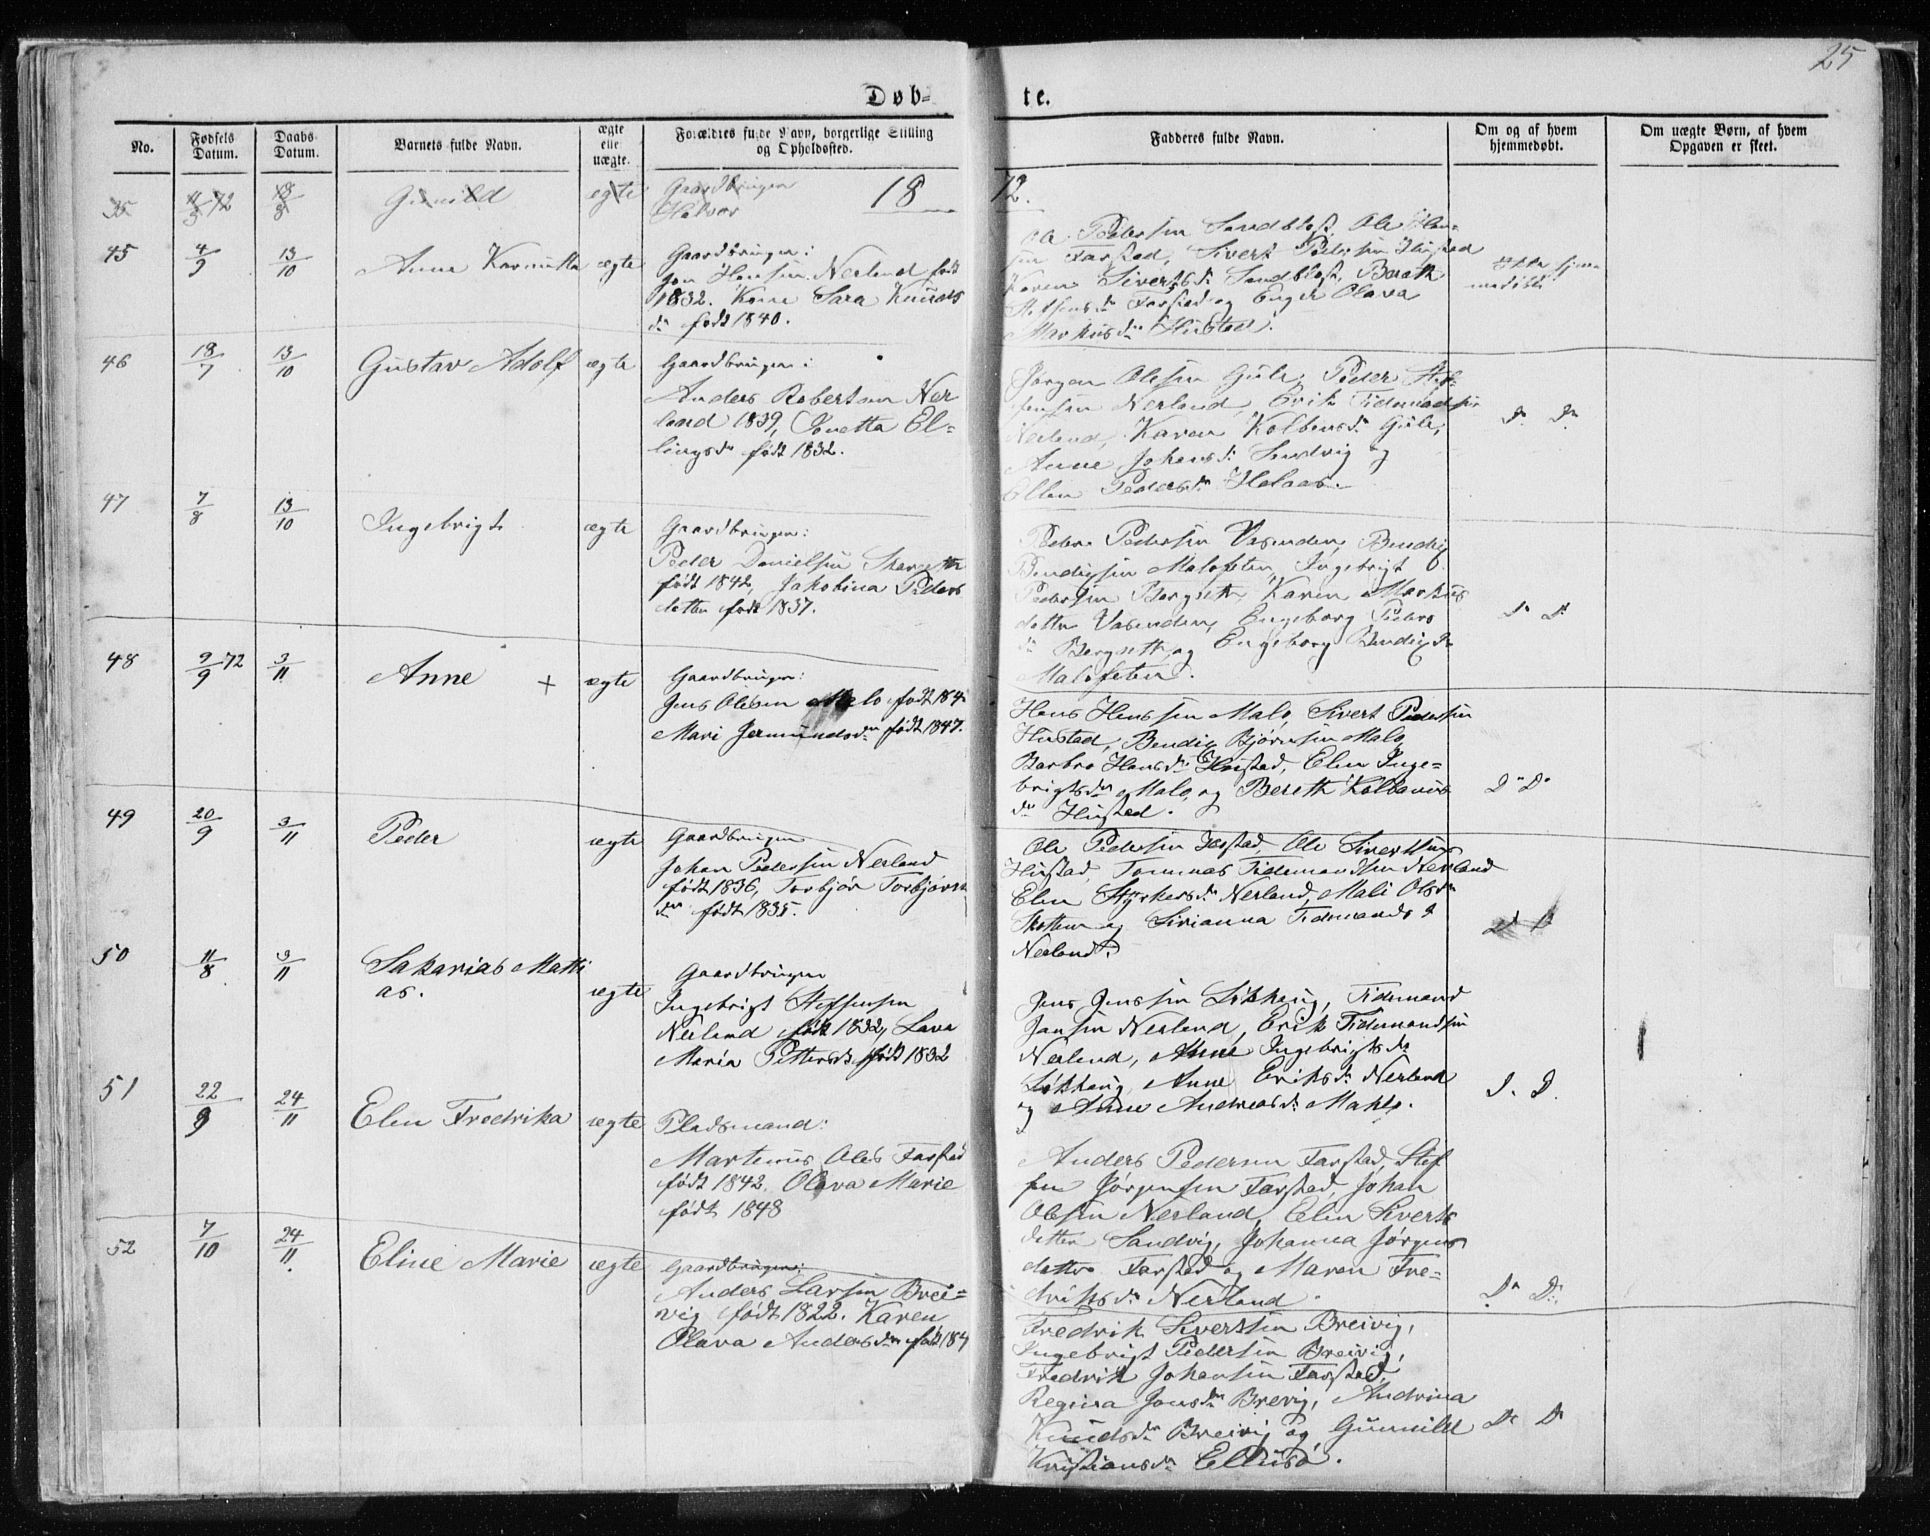 25
Døb=
te.
No.
Fødsels Datum.
Daabs Datum.
Barnets fulde Navn.
ægte elle uægte.
Forældres fulde Navn, borgerlige Stilling
og Opholdssted.
Fadderes fulde Navn.
Om og af hvem
hjemmedøbt.
Om uægte Børn, af hvem
Opgaven er skeet.
35 72 Gunild egte Gaardbruger
Halvor
18 72.
45 4/9 13/10 Anna Karnutta ægte Gaardbruger:
Jon Hansen Nerland født
1832. Kone Sara Knuds
dr født 1840.
Ole Pedersen Sandblost, Ole Han=
sen Farstad, Sivert Pedersen Hustad
Karen Sivertsdr Sandblost, Bereth
Farstad og Enger Olava
Markusdr Hustad.
46 18/7 13/10 Gustav Adolf ægte Gaardbruger:
Anders Robertsen Ner
land 1839, Jonetta El=
lingsdr født 1832.
Jørgen Olesen Gule, Peder Stef=
fensen Nerland, Erik Tidemandsen
Nerland, Karen Kolbensdr Gule,
Anne Johansdr Sandvig og
Ellen Pedersdr Holaas.
Do Do
47 7/8 13/10 Ingebrigt ægte Gaardbruger:
Peder Danielsen
født 1842, Jakobina Peders
datter født 1837.
Peder Pedersen Vasenden, Bendig
Bendigsen Malofeten, Ingebrigt
Pedersen Bergseth, Karen Markus
datter Vasenden, Engeborg Peders
dr Bergseth og Engeborg Bendigsdr
Malofeten.
Do Do
48 9/9 72 3/11 Anne + ægte Gaardbruger:
Jens Olesen Malo, født 184
Mari Jermundsdr født 1847.
Hans Hanssen Malo, Sivert Pedersen
Hustad, Bendig Bjørnsen Malo
Barbro Hansdr Hustad, Elen Inge=
brigtsdr Malo, og Bereth Kolbensd
dr Hustad.
Do Do
49 20/9 3/11 Peder ægte Gaardbruger
Johan Pedersen Nerland
født 1836, Torbjør Torbjørns
dr født 1835.
Ole Pedersen Hustad, Ole Sivertsen
Hustad, Tommas Tidemandsen Nerland
Elen Styrkersdr Nerland, Mali Olsdr
og Sirianna Tidemands d
Nerland.
Do D
50 11/8 3/11 Sakarias Matti
as.
ægte Gaardbruger
Ingebrigt Steffensen
Nerland født 1832, Lava
Maria Pettersd født 1832
Jens Jenssen Likhaug, Tidemand
Jansen Nerland, Erik Tidemandsen
Nerland, Anne Ingebrigtsdr
Likhaug, Anne Eriksdr Nerland
og Anne Andreasdr Malo.
D. D.
51 22/9 24/11 Elen Fredrika ægte Pladsmand:
Martinus Ols Farstad
født 1842. Olava Marie
født 1848
Anders Pedersen Farstad, Stef
fen Jørgensen Farstad, Johan
Olesen Nerland, Elen Siverts
datter Sandvig, Johanna Jørgens
datter Farstad og Maren Fre=
driksdr Nerland.
Do Do
52 7/10 24/11 Eline Marie ægte Gaardbruger:
Anders Larsen Brei=
vig født 1822. Karen
Olava Andersdr født 184
Fredrik Sivertsen Breivig,
Ingebrigt Pedersen Breivig,
Fredrik Johansen Farstad,
Regina Jonsdr Brevig, Andrina
Knudsdr Breivig og Gunnild
Kristiansdr Ellusø.
Do Do